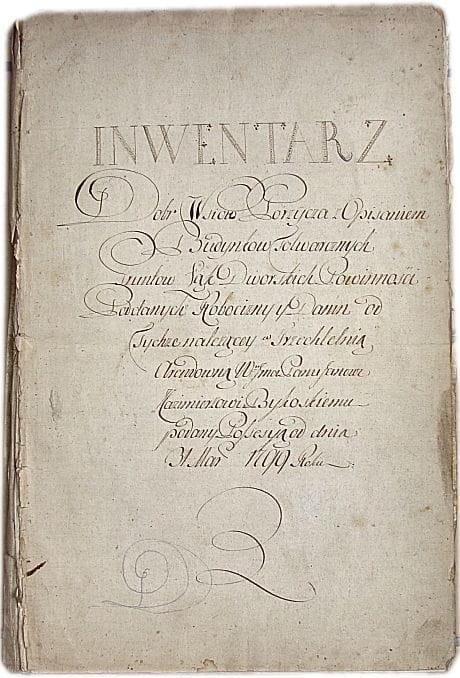 INWENTARZ
Dobr Wsiow Porzycza z Opisaniem
Budynkow folwarcznych
Gruntow Łąk Dworskich Powinnosci
Poddanych Robocizny y Danin od
Tychze należący w Trzechletnią
Arendowną
Kazimierzowi Bykoskiemu
podany Possesyą od dnia
31 Mar 1799 Roku